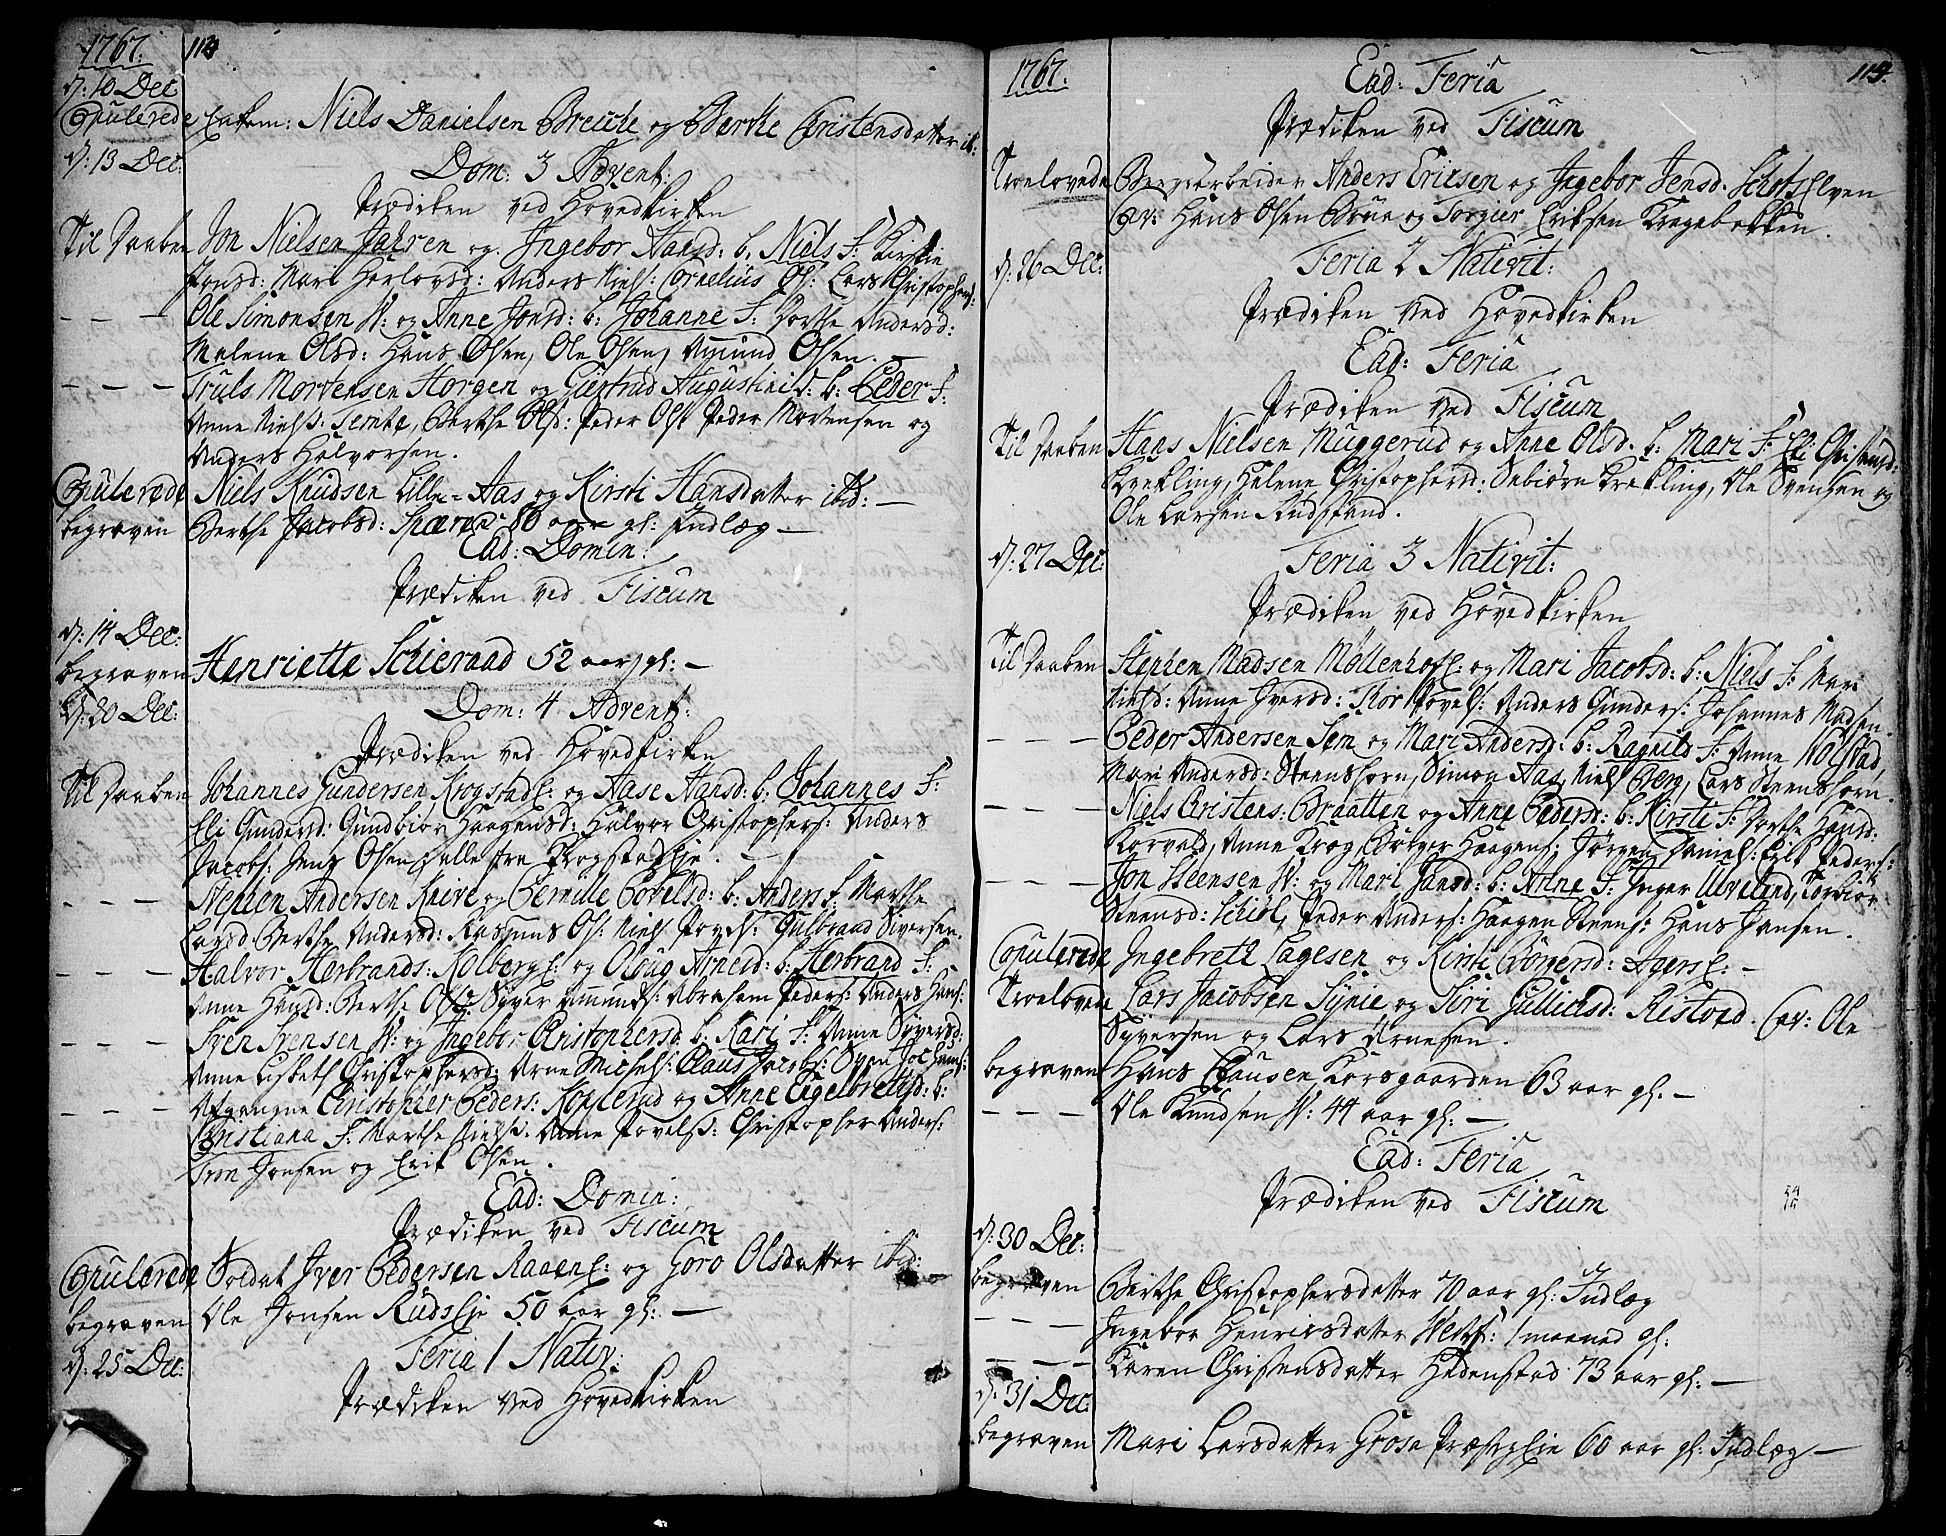 1767. 112
d: 10 Dec
Copulerede Enkem: Niels Danielsen Brecke og Berthe Christensdatter ib:
d: 13 Dec: Dom: 3 Advent:
Prædiken ved Hovedkirken
Til Daaben Jon Nielsen Jahren og Ingebor Hansd: b. Niels F: Kirstie
Jonsd: Mari Herlovsd: Anders Niels: Cornelius Ols: Lars Christophers:
— — — Ole Simonsen W: og Anne Jonsd: b: Johanne F: Dorthe Andersd:
Malene Olsd: Hans Olsen, Ole Olsen, Amund Olsen. —
— — — Truls Mortensen Horgen og Giertrud Augustini D: b: Peder F:
Anne Nielsd: Temte, Berthe Olsd: Peder Ols: Peder Mortensen og
Anders Halvorsen.
Copulerede Niels Knudsen Lille-Aas og Kirsti Hansdatter ibid: —
begraven Berthe Jacobsd: 80 aar gl: Indlæg —
Ead: Domin:
Prædiken ved Fiscum
d: 14 Dec:
begraven Henriette Schieraad 52 aar gl: —
d: 20 Dec: Dom: 4 Advent:
Prædiken ved Hovedkirken
Til Daaben Johannes Gundersen Krogstad E: og Aase Hansd: b: Johannes F:
Eli Gundersd: Gunbior Haagensd: Halvor Christophers: Anders
Jacobs: Jens Olsen Krogstad Eje. —
— — — Stephen Andersen Knive og Pernille Povelsd: b: Anders F: Marthe
Larsd: Berthe Andersd: Rasmus Ols: Niels Povels: Gulbrand Siversen.
— — — Halvor Herbrands: Kolberg E: og Oloug Arnesd: b: Herbrand F:
Anne Hansd: Berthe Olsd: Syver Amunds: Abraham Peders: Anders Hans:
— — — Sven Svensen W: og Ingebor Christophersd: b: Kari F: Anne Syversd:
Anne Lisbeth Christophersd: Arne Michels: Claus Jacobs: Sven Jochums:
— — — Afgangne Christopher Peders: Kopperud og Anne Engelbrettsd: b:
Christiana F: Marthe Nielsd: Anne Povelsd: Christopher Anders:
Tron Jonsen og Erik Olsen.
Ead: Domin:
Prædiken ved Fiscum
Copulerede Soldat Iver Pedersen Raaen E: og Goro Olsdatter ibid:
begraven Ole Jonsen Ruds Eje 50 aar gl: —
d: 25 Dec: Feria 1 Nativ:
Prædiken ved Hovedkirken
1767. Ead: Feria 113.
Prædiken ved Fiscum
Troelovede Bergarbeider Anders Ericsen og Ingebor Jensd: Schots Elven
Cav: Hans Olsen Brua og Torgier Eriksen Kragebakken.
d: 26 Dec: Feria 2 Nativit:
Prædiken ved Hovedkirken
Ead: Feria
Prædiken ved Fiscum
Til Daaben Hans Nielsen Muggerud og Anne Olsd: b: Mari F: Eli
Krekling, Helene Christophersd: Sebiørn Krekling, Ole Svensen og
Ole Larsen Rudstand.
d: 27 Dec: Feria 3 Nativit:
Prædiken ved Hovedkirken
Til Daaben Stephen Madsen Møllenhof E: og Mari Jacobsd: b: Niels F: Mari
Nielsd: Anne Iversd: Thor Povels: Anders Gunders: Johannes Madsen.
— — — Peder Andersen Sem og Mari Andersd: b: Ragnild F: Anne Kolstad,
Mari Andersd: Steenshorn, Simon Aas, Niels Berg, Lars Steenshorn.
— — — Niels Cristens: Braatten og Anne Pedersd: b: Kirsti F: Dorthe Hansd:
Korvald, Anne Krog, Børger Haagens: Jørgen Daniels: Peders:
— — — Jon Steensen W: og Mari Jansd: b: Anne F: Inger Ulveland, Torbior
Steensd: Schiøl, Peder Anders: Haagen Steens: Hans Jansen.
Copulerede Ingebreth Tagesen og Kirsti Børgersd: Agers E: —
Troelovede Lars Jacobsen Synie og Siri Gullicsd: Ristvad. Cav: Ole
Syversen og Lars Arnesen.
begraven Hans Clausen Korsgaarden 63 aar gl: —
— — — Ole Knudsen W: 44 aar gl: —
Ead: Feria
Prædiken ved Fiscum
d: 30 Dec:
begraven Berthe Christophersdatter 70 aar gl: Indlæg
— — — Ingebor Henricsdatter 1 maaned gl:
— — — Karen Christensdatter Hedenstad 73 aar gl: —
d: 31 Dec
begraven Mari Larsdatter Grosa 60 aar gl: Indlæg —